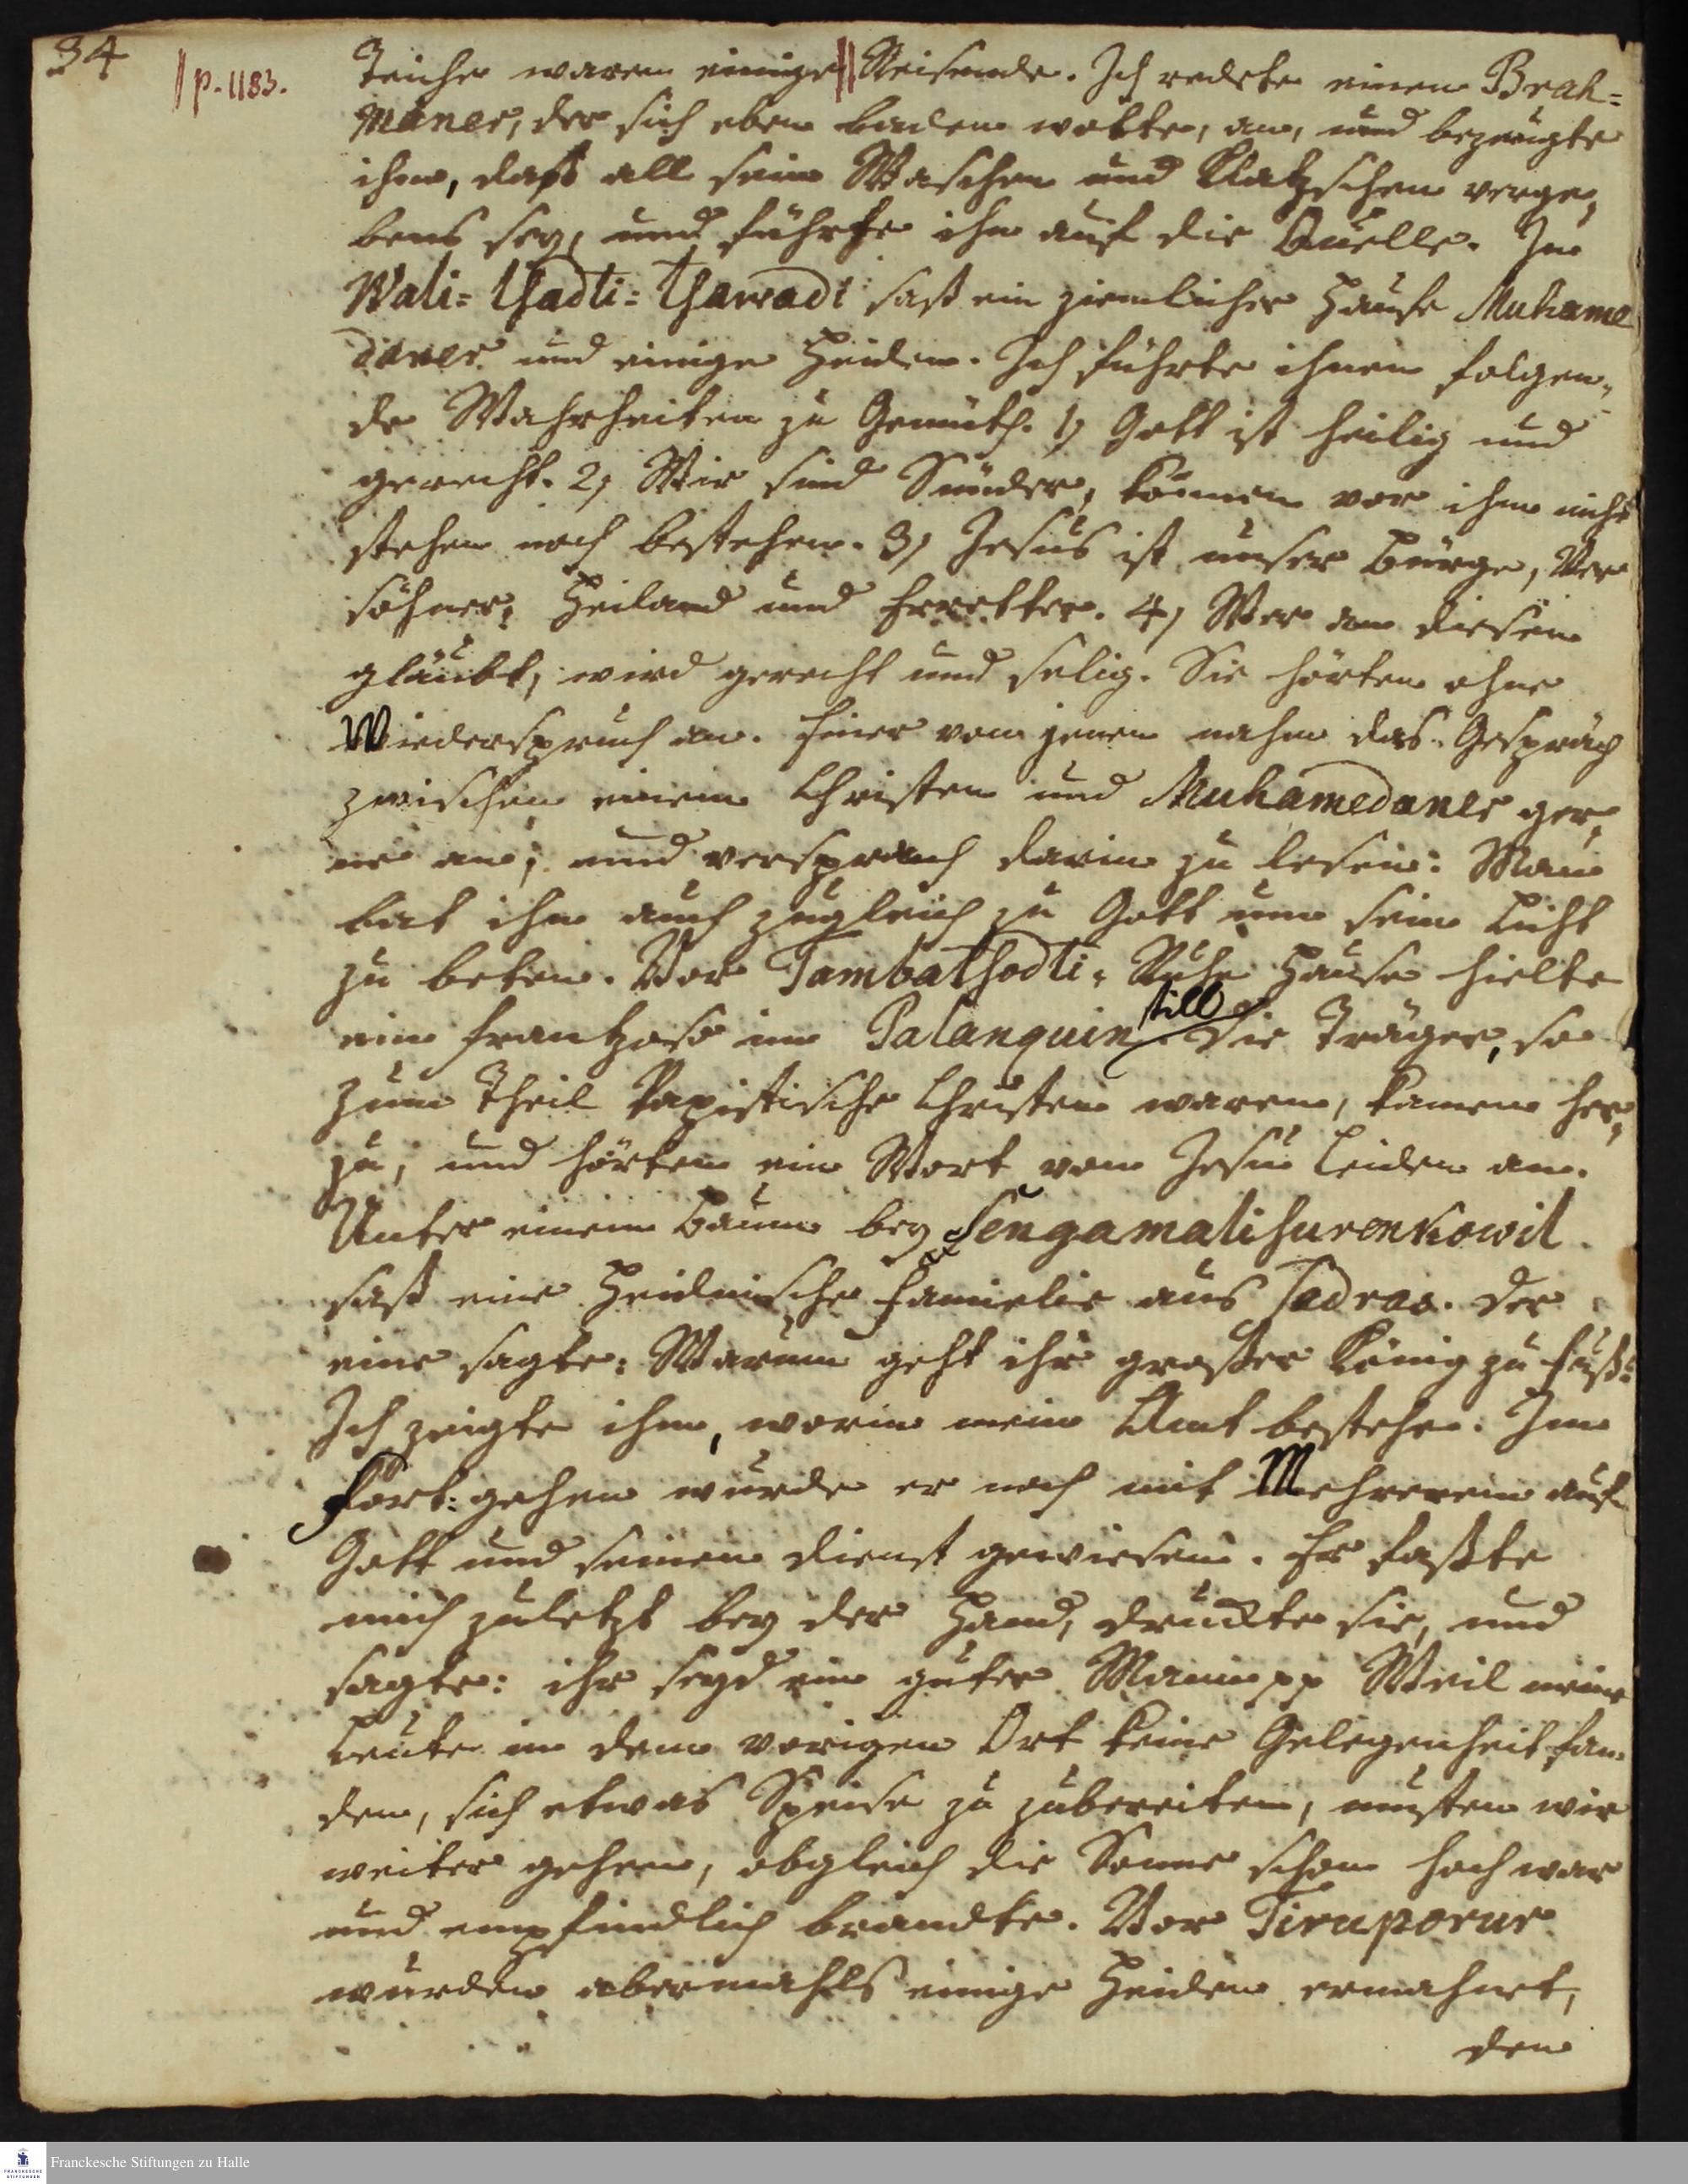 34
|| p. 1183.
Teiche waren einige || Reisende. Ich redete einen Brah=
maner, der sich eben baden wolte, an, und bezeugte
ihm, daß all sein Waschen und Klatschen verge,
bens sey, und führte ihn auf die Quelle. In
Wali= thadti= thawadi saß ein ziemlicher Haufe Muhame
daner und einige Heiden. Ich führte ihnen folgen,
de Wahrheiten zu Gemüth. 1) Gott ist heilig und
gerecht. 2) Wir sind Sünder, können vor ihm nicht
stehen noch bestehen. 3) Jesus ist unser Bürge, Ver
söhner, Heiland und Erretter. 4) Wer an diesen
gläubt, wird gerecht und selig. Sie hörten ohne
Wiederspruch an. Einer von jenen nahm das Gespräch
zwischen einem Christen und Muhamedaner ger,
ne an, und versprach darin zu lesen: Man
bat ihn auch zugleich zu Gott um sein Licht
zu beten. Vor Tambathodti= Ruhe Hause hielte
ein Frantzos im Palanquin still. Die Träger, so
zum Theil Papistische Christen waren, kamen her,
zu, und hörten ein Wort vom Jesu Leiden an.
Unter einem Baum bey Sengamalisurenkowil
saß eine Heidnische Familie aus Sadras. Der
eine sagte: Warum geht ihr großer König zu Fuß?
Ich zeigte ihm, worin mein Amt bestehe. Im
Fort=gehen wurde er noch mit Mehrerem auf
Gott und seinen Dienst gewiesen. Er faßte
mich zuletzt bey der Hand, druckte sie, und
sagte: ihr seyd ein guter Mann pp Weil meine
Leute in dem vorigen Ort keine Gelegenheit fan
den, sich etwas Speise zu zubereiten, musten wir
weiter gehen, obgleich die Sonne schon hoch war
und empfindlich brandte. Vor Tiruporur
wurden abermahls einige Heiden ermahnet,
den
Franckesche Stiftungen zu Halle
FRANCKESCHE
STIFTUNGEN